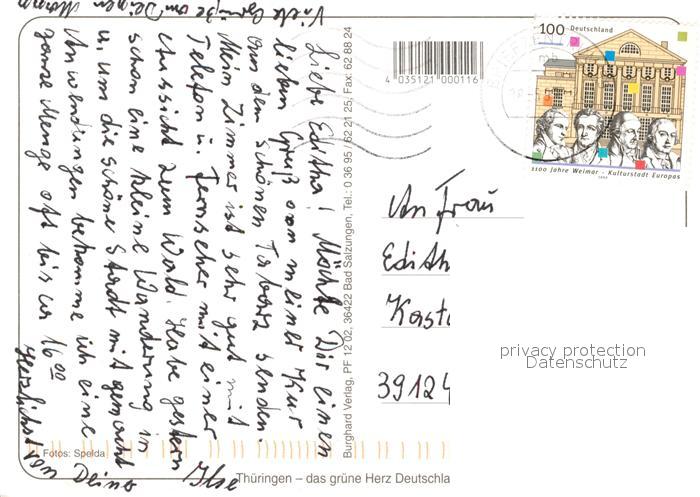 Viele Grüße an Deinen Mann
Liebe Editha! Möchte Dir einen
lieben Gruß von meiner Kur
aus dem schönen Tabarz senden.
Mein Zimmer ist sehr gut mit
Telefon u. Fernseher mit einer
Aussicht zum Wald. Habe gestern
schon eine kleine Wanderung in
u. um die schöne Stadt mit gemacht
Anwendungen bekomme ich eine
ganze Menge oft bis ca 16.00
Herzlichst Deine
Ilse
Fotos: Spelda
Thüringen – das grüne Herz Deutschla
Burghard Verlag, PF 12 02, 36422 Bad Salzungen, Tel.: 0 36 95 / 62 21 25, Fax: 62 88 24
4 035121 000116
BRIEFZEN
100 Deutschland
1100 Jahre Weimar - Kulturstadt Europas
1999
An Frau
Edith
Kasta
39124
privacy protection
Datenschutz